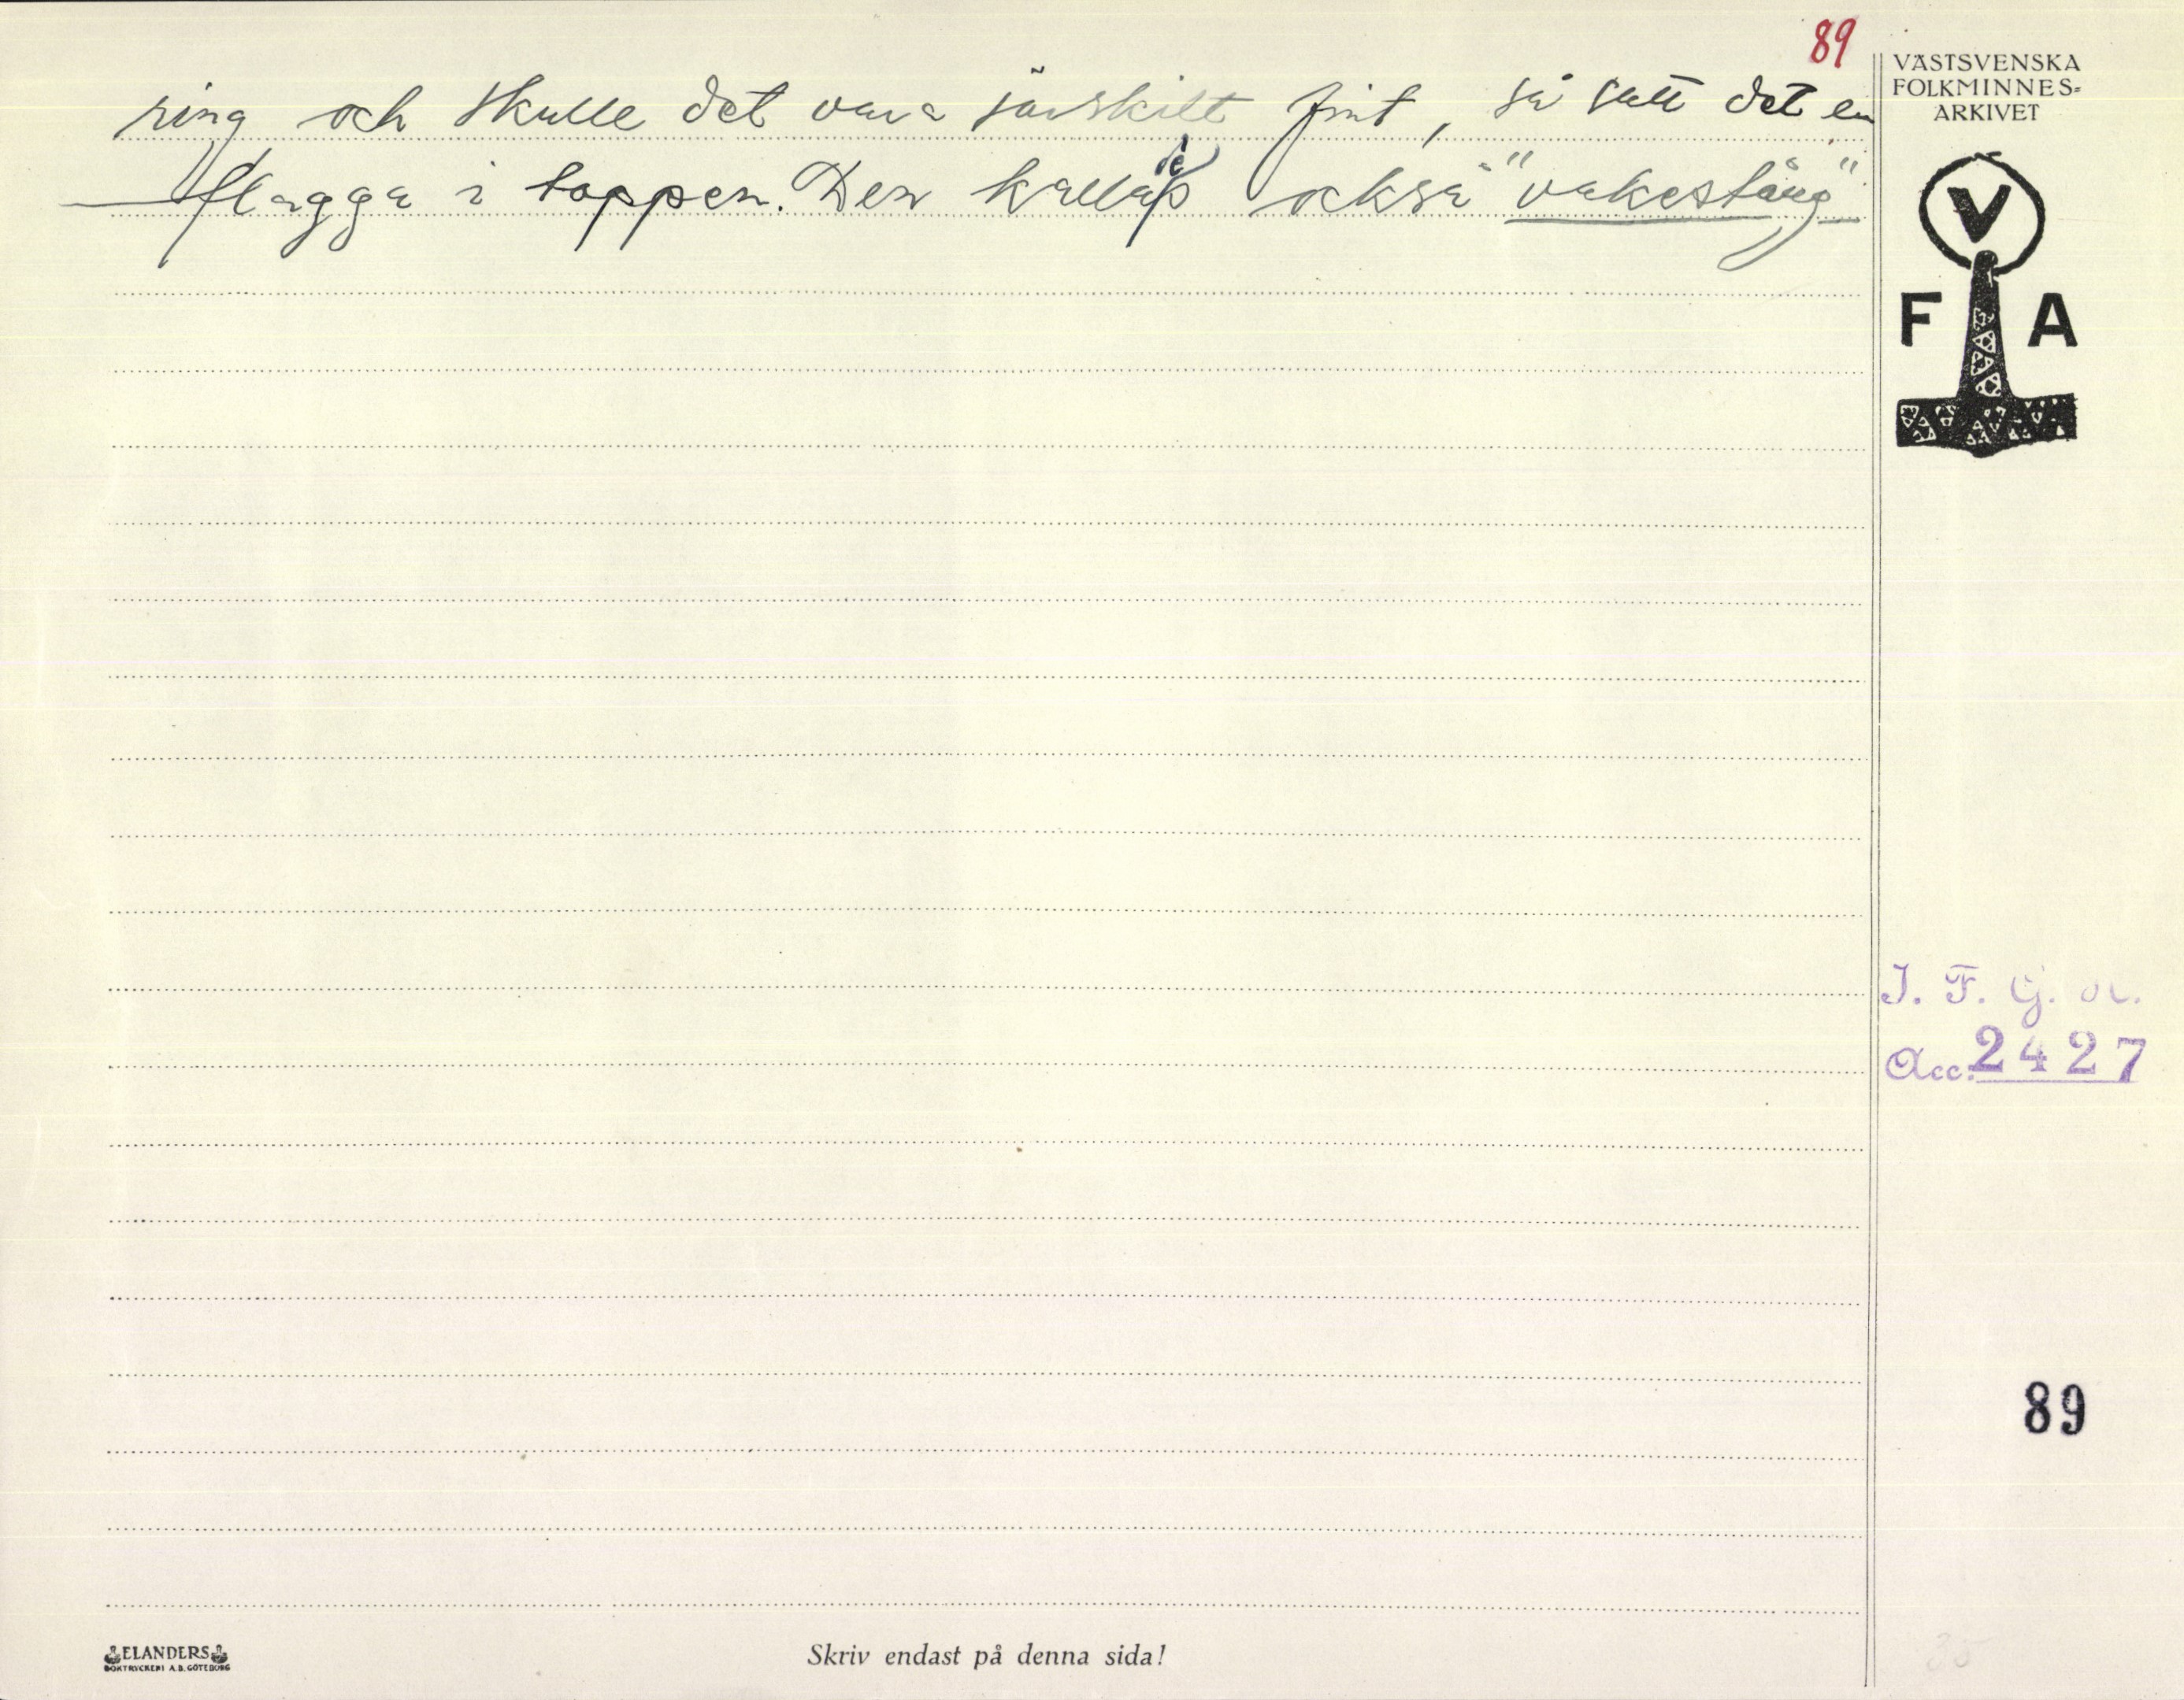 89
ring och skulle det vara särskilt fint, så satt det en
flagga i toppen. Den kallades också "vakestång"
VÄSTSVENSKA
FOLKMINNES=
ARKIVET
V
F A
I. F. G. H.
Acc. 2427
89
ELANDERS
BOKTRYCKERI A.B. GÖTEBORG
Skriv endast på denna sida!